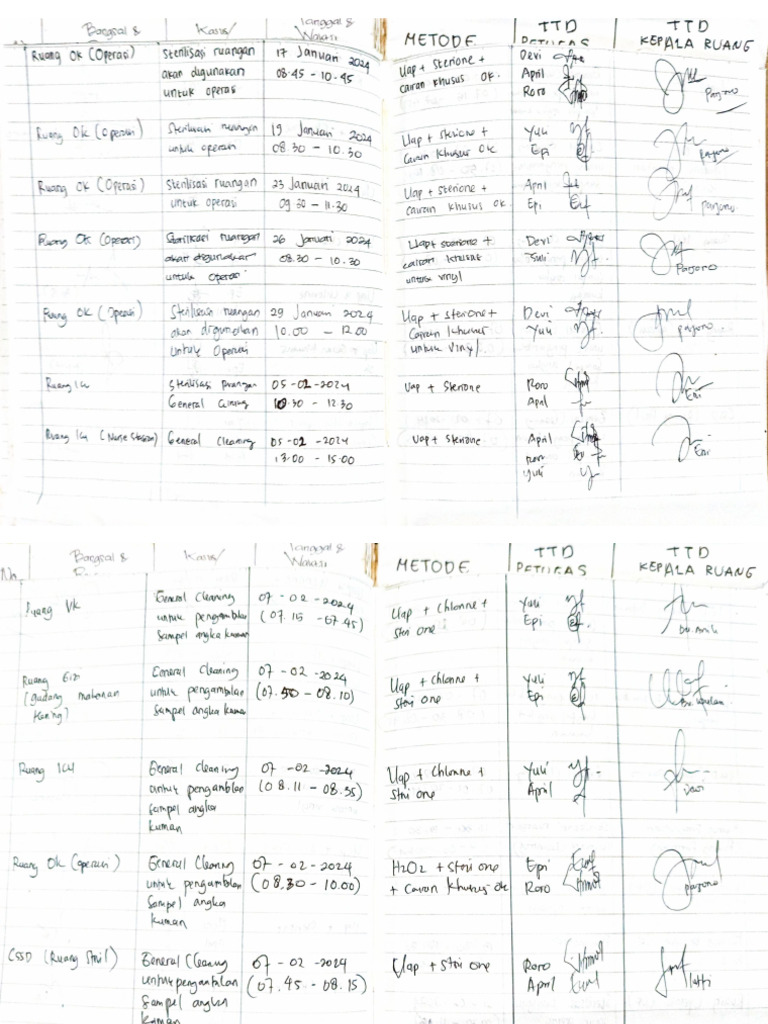 Bangsal & Kasus/ Tanggal & METODE TTD TTD
Waktu PETUGAS KEPALA RUANG
Ruang OK (Operasi) Sterilisasi ruangan 17 Januari 2024 Uap + Sterione + Devi
akan digunakan 08.45 - 10.45 cairan khusus OK. April
untuk operasi Roro Parjono
Ruang OK (Operasi) Sterilisasi ruangan 19 Januari 2024 Uap + Sterione + Yuli
untuk operasi 08.30 - 10.30 Cairan Khusus OK Epi Parjono
Ruang OK (Operasi) Sterilisasi ruangan 23 Januari 2024 Uap + Sterione + April
untuk operasi 09.30 - 11.30 cairan khusus OK. Epi Parjono
Ruang OK (Operasi) Sterilisasi ruangan 26 Januari 2024 Uap + sterione + Devi
akan digunakan 08.30 - 10.30 cairan khusus Yuli
untuk operasi untuk vinyl Parjono
Ruang OK (Operasi) Sterilisasi ruangan 29 Januari 2024 Uap + Sterione + Devi
akan digunakan 10.00 - 12.00 Cairan khusus Yuli Parjono
Untuk Operasi (untuk vinyl)
Ruang ICU Sterilisasi ruangan 05-02-2024 Uap + Sterione Roro
General Cleaning 10.30 - 12.30 April Eni
Ruang ICU (Nurse Station) General Cleaning 05-02-2024 Uap + Sterione April
13.00 - 15.00 Roro Eni
Yuli
No. Bangsal & Kasus/ Tanggal & METODE TTD TTD
Waktu PETUGAS KEPALA RUANG
Ruang VK General Cleaning 07-02-2024 Uap + Chlorine + Yuli
untuk pengambilan (07.15 - 07.45) Stri one Epi
Sampel angka kuman
Ruang Gizi General Cleaning 07-02-2024 Uap + Chlorine + Yuli
(gudang makanan untuk pengambilan (07.50 - 08.10) Stri one Epi
kering) Sampel angka kuman
Ruang ICU General Cleaning 07-02-2024 Uap + Chlorine + Yuli
untuk pengambilan (08.11 - 08.35) Stri one April
Sampel angka
kuman
Ruang OK (operasi) General Cleaning 07-02-2024 H2O2 + Stri one Epi
untuk pengambilan (08.30 - 10.00) + Cairan Khusus OK Roro Parjono
Sampel angka
kuman
CSSD (Ruang Stril) General Cleaning 07-02-2024 Uap + Stri one Roro
untuk pengambilan (07.45 - 08.15) April
Sampel angka
kuman